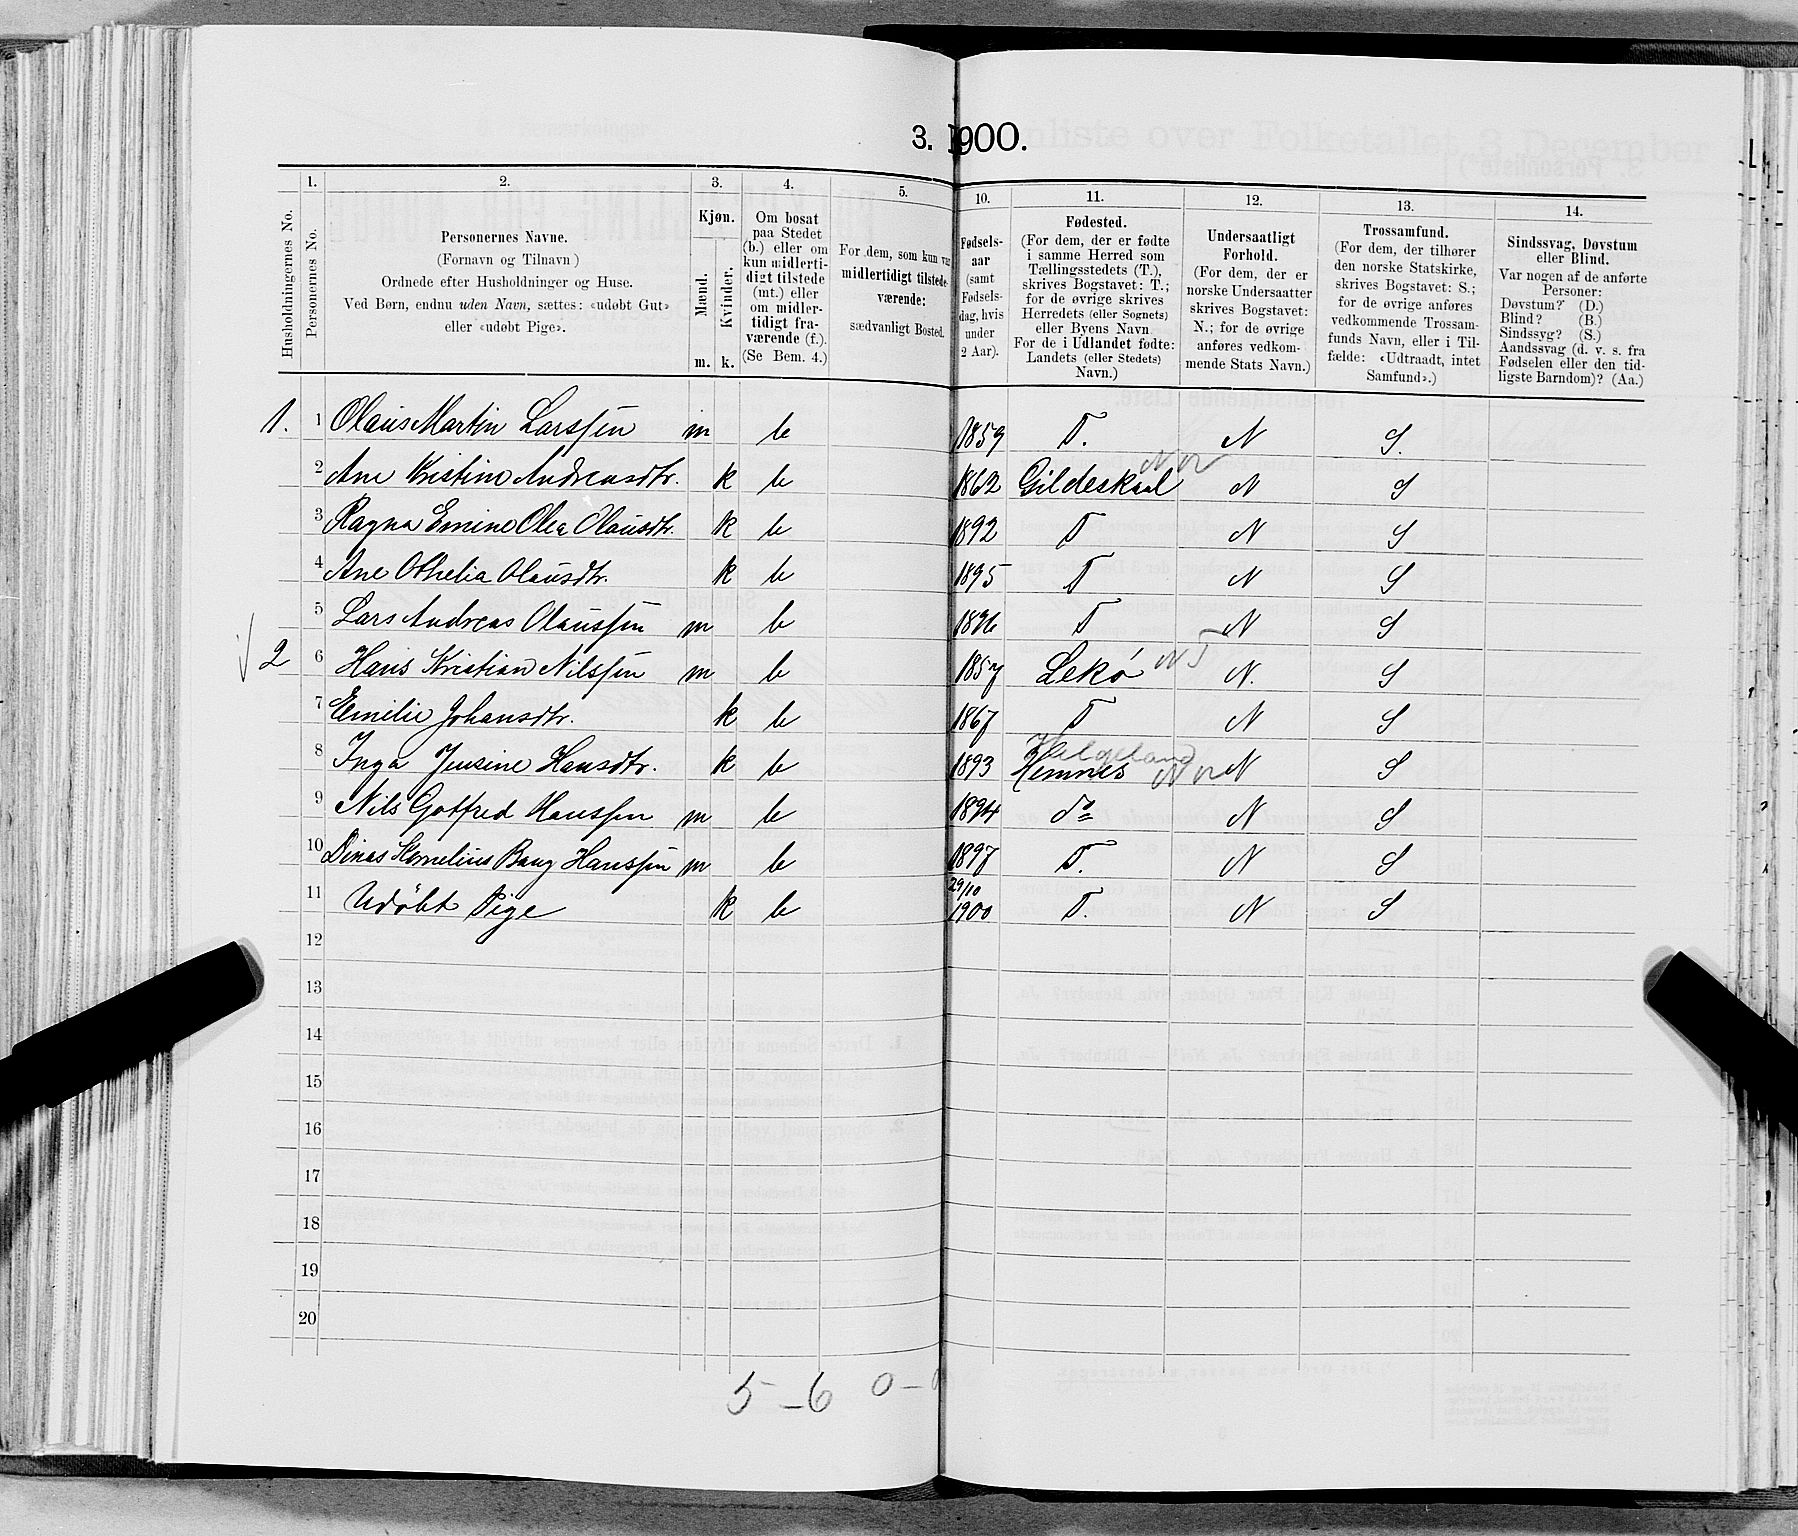 3. 1900.
1. 2. 3. 4. 5. 10. 11. 12. 13. 14.
Husholdningernes No.
Personernes No.
Personernes Navne.
(Fornavn og Tilnavn)
Ordnede efter Husholdninger og Huse.
Ved Børn, endnu uden Navn, sættes: «udøbt Gut»
eller «udøbt Pige».
Kjøn.
Mænd.
Kvinder.
m. k.
Om bosat
paa Stedet
(b.) eller om
kun midlerti-
digt tilstede
(mt.) eller
om midler-
tidigt fra-
værende (f.).
(Se Bem. 4.)
For dem, som kun var
midlertidigt tilstede-
værende:
sædvanligt Bosted.
Fødsels-
aar
(samt
Fødsels-
dag, hvis
under
2 Aar).
Fødested.
(For dem, der er fødte
i samme Herred som
Tællingsstedets (T.),
skrives Bogstavet: T.;
for de øvrige skrives
Herredets (eller Sognets)
eller Byens Navn
For de i Udlandet fødte:
Landets (eller Stedets)
Navn.)
Undersaatligt
Forhold.
(For dem, der er
norske Undersaatter
skrives Bogstavet:
N.; for de øvrige
anføres vedkom-
mende Stats Navn.)
Trossamfund.
(For dem, der tilhører
den norske Statskirke,
skrives Bogstavet: S.;
for de øvrige anføres
vedkommende Trossam-
funds Navn, eller i Til-
fælde: «Udtraadt, intet
Samfund».)
Sindssvag, Døvstum
eller Blind.
Var nogen af de anførte
Personer:
Døvstum? (D.)
Blind? (B.)
Sindssyg? (S.)
Aandssvag (d. v. s. fra
Fødselen eller den tid-
ligste Barndom)? (Aa.)
1. 1 Olaus Martin Larssen m b 1859 T. N S.
2 Ane Kristine Andreasdtr. k b 1862 Gildeskaal No N S
3 Ragna Emine Olea Olausdtr. k b 1892 T N S
4 Ane Othelia Olausdtr. k b 1895 T N S
5 Lars Andreas Olaussen m b 1896 T N S
2 6 Hans Kristian Nilssen m b 1857 Lekø NT N. S
7 Emilie Johansdtr. k b 1867 T N S
8 Inga Jensine Hansdtr. k b 1893 Helgeland Hemnes No N S
9 Nils Gotfred Hanssen m b 1894 do N S
10 Dinas Kornelius Bang Hanssen m b 1897 T. N S
11 Udøbt Pige k b 29/10 1900 T. N S
12
13
14
15
16
17
18
19
20
5 - 6 0 -